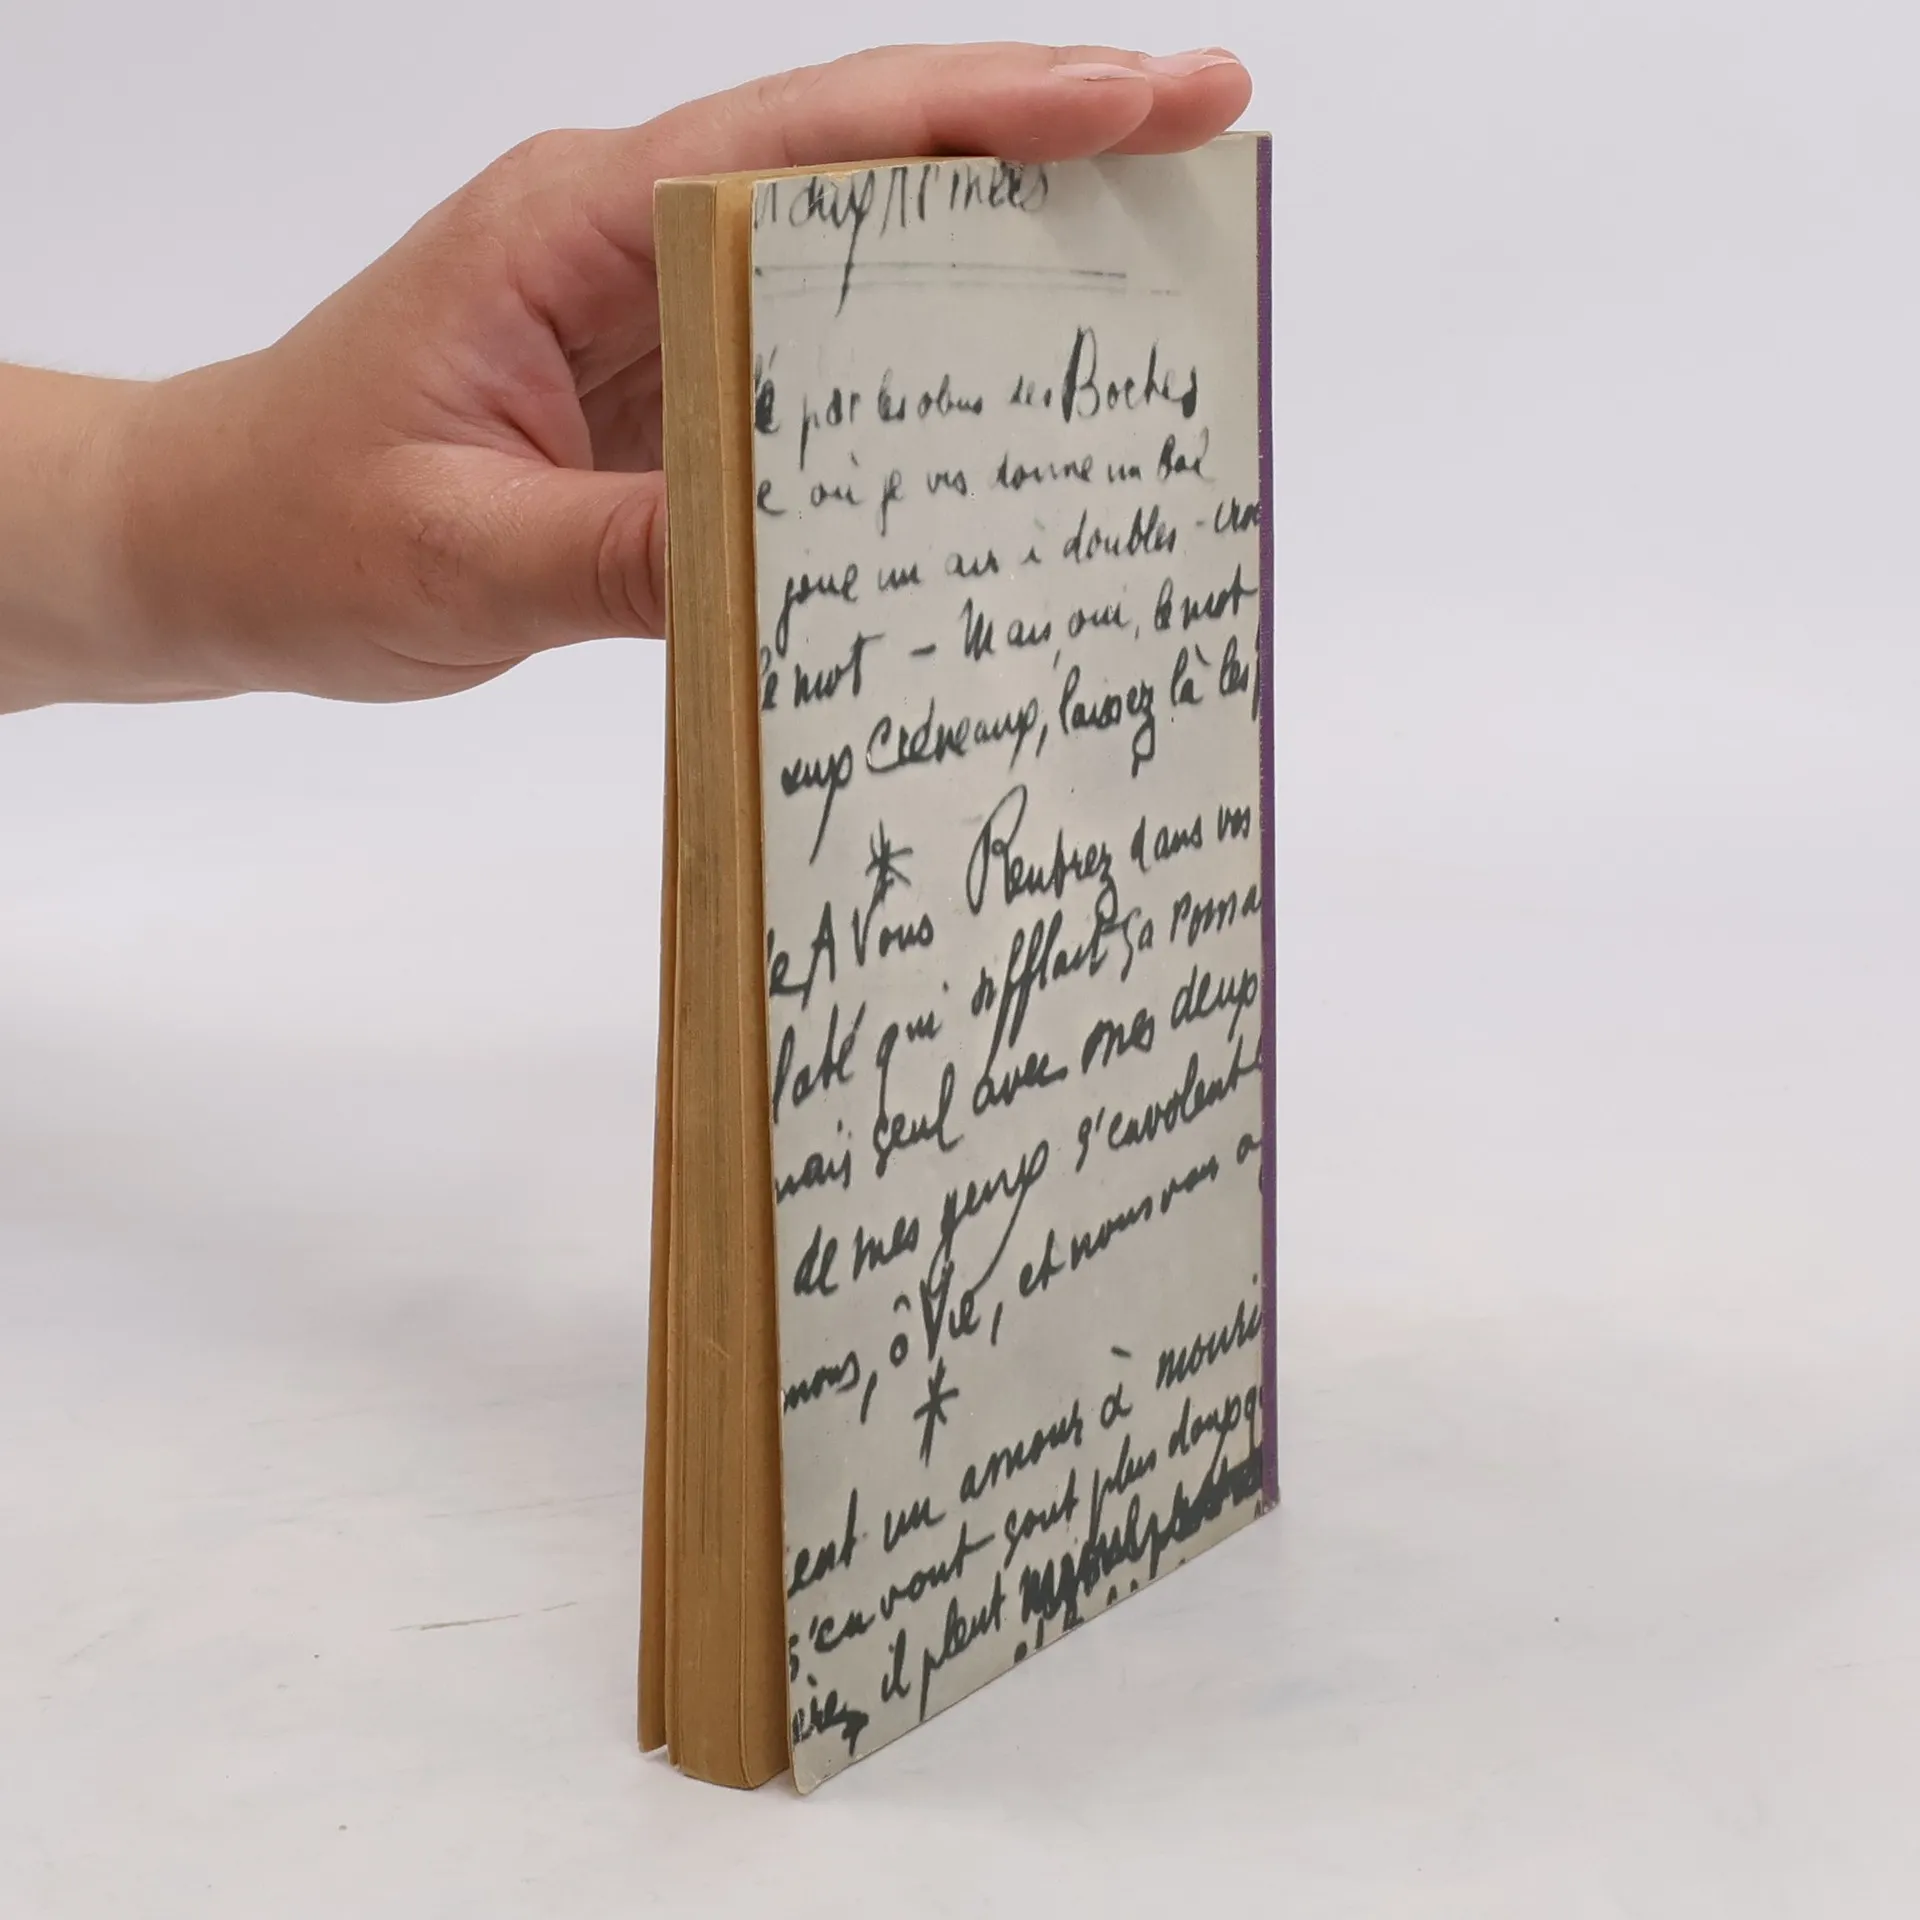 aux Armées
é par les obus des Boches
e où je vis donne un Bal
joue un air à doubles-cro
le mot — Mais, oui, le mot
aux Créneaux, laissez là les
*
e A Vous Rentrez dans vos
laté qui sifflait sa roma
mais seul avec mes deux
de mes yeux s'envolent
nous, ô Vie, et nous vou
*
ent un amour à mouri
s'en vont sont plus doux q
il pleut